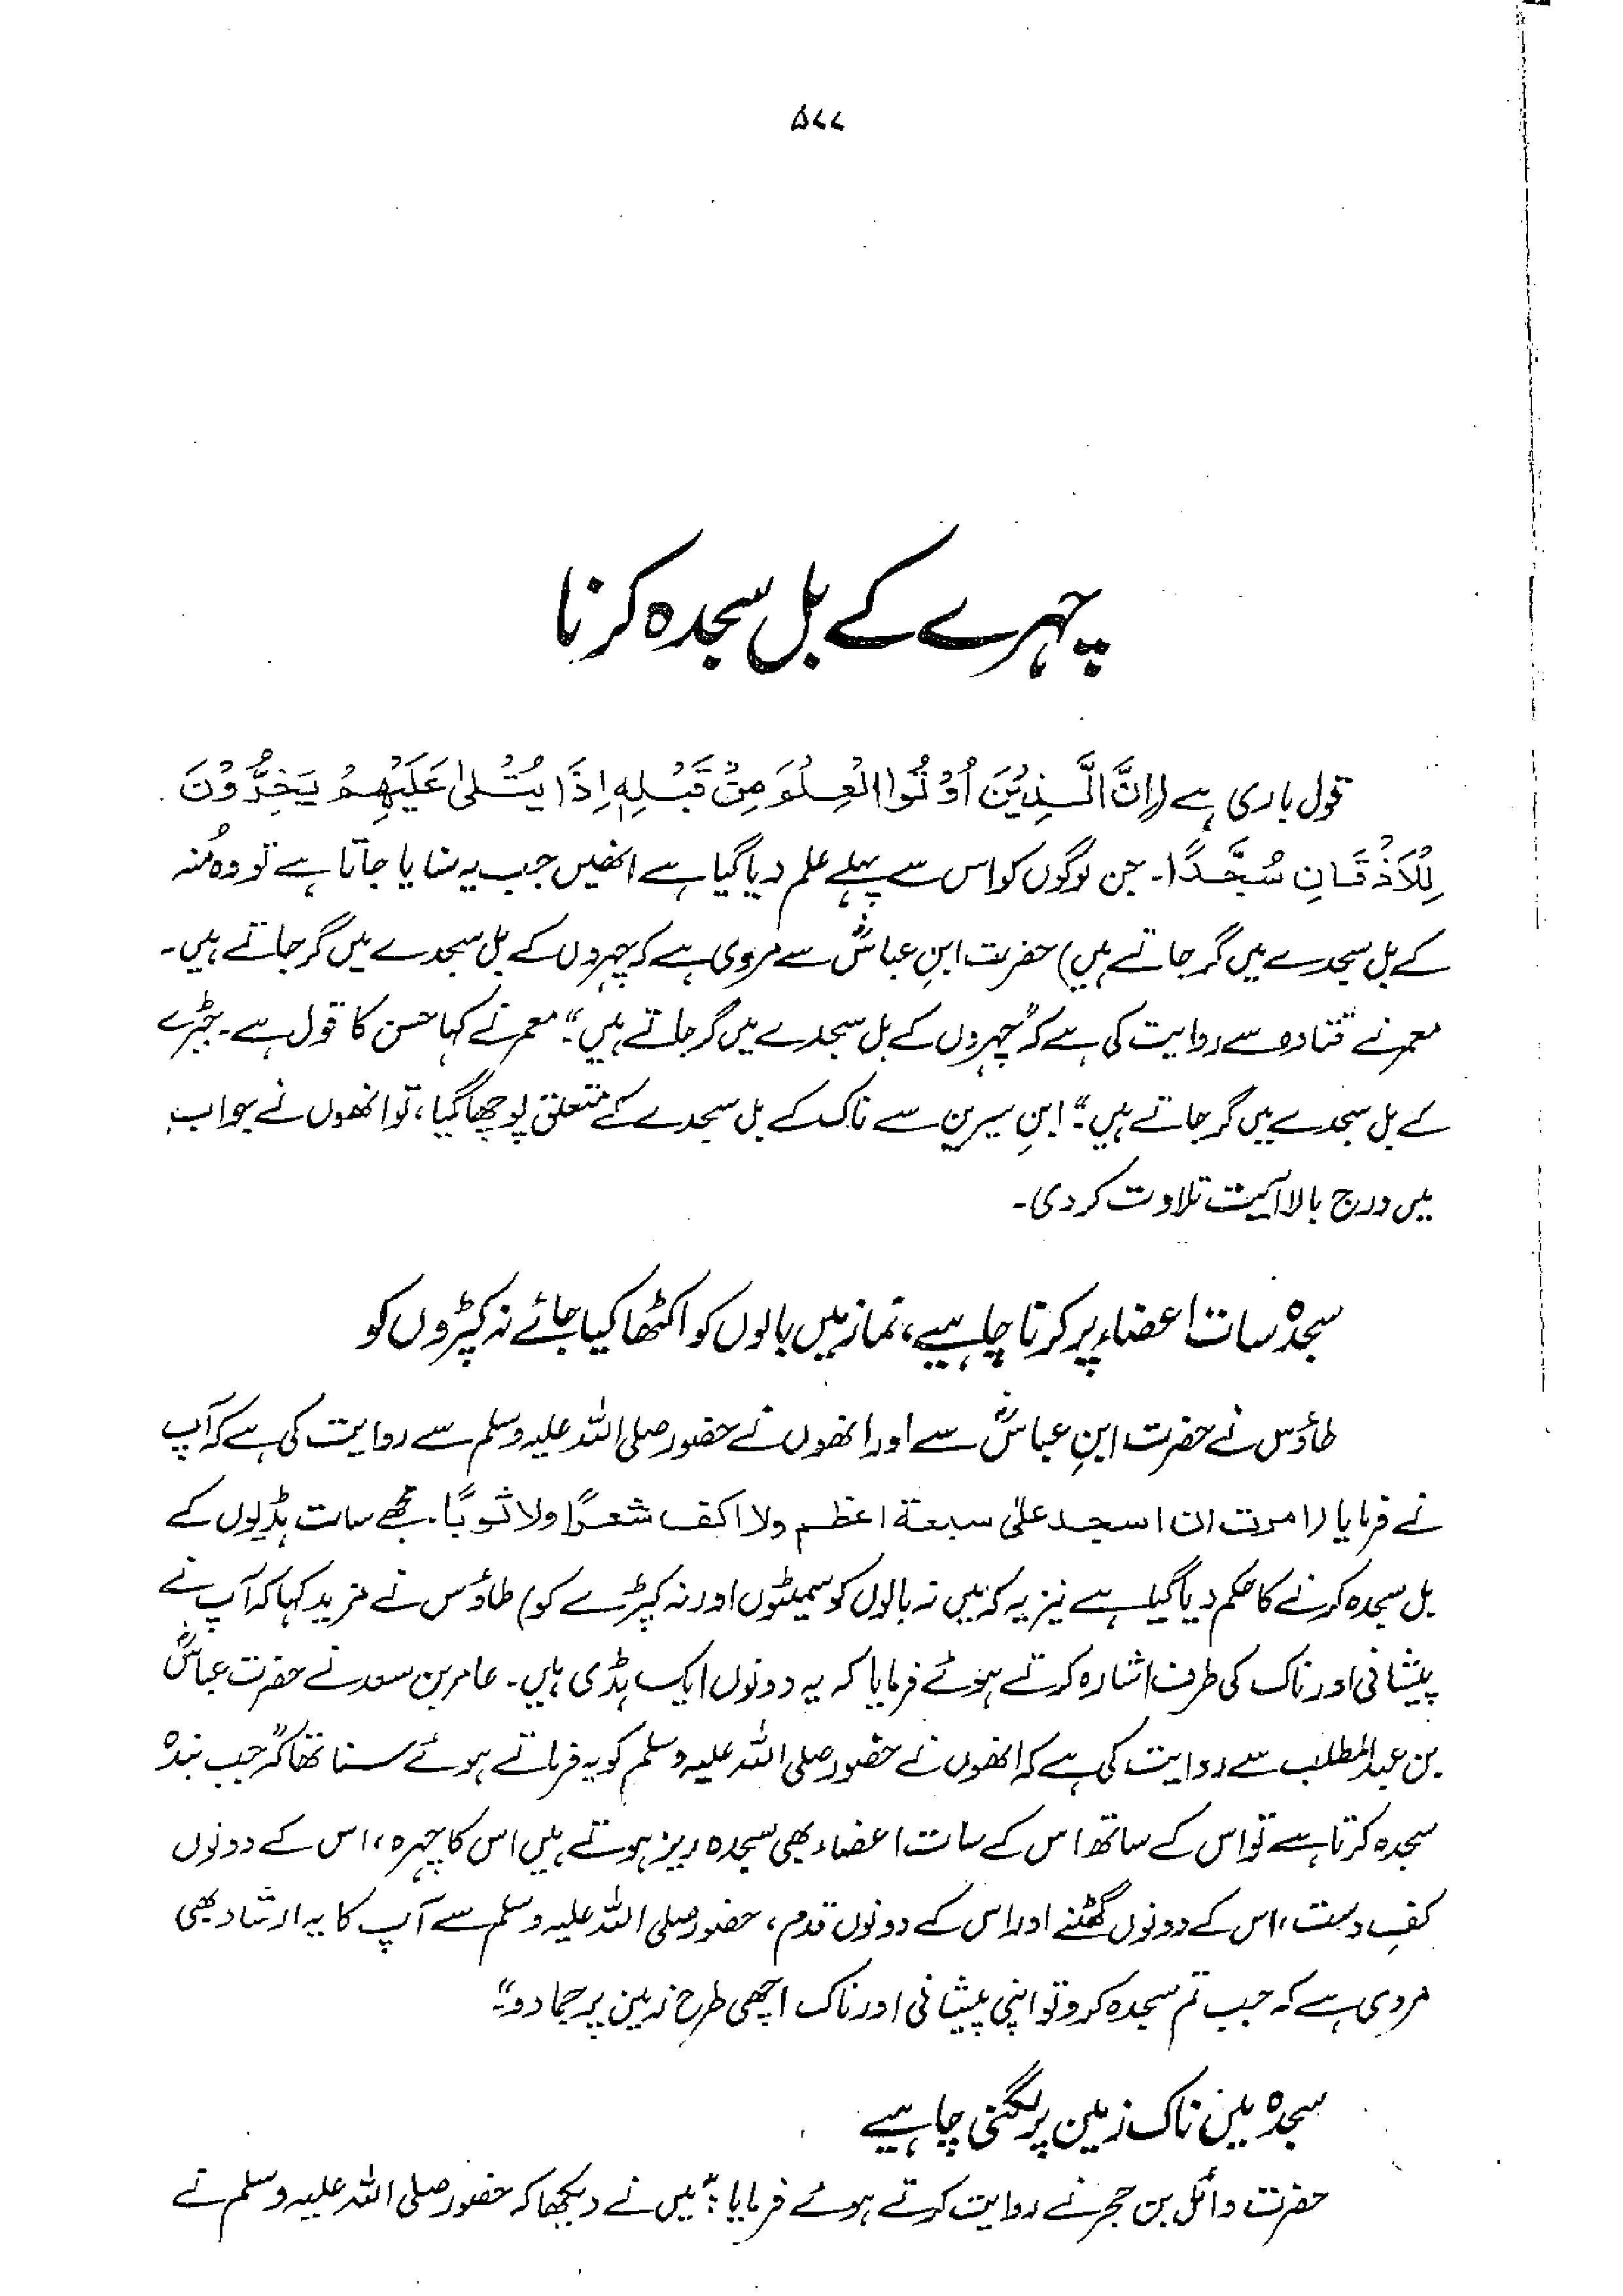 ۵۷۷
چہرے کے بل سجدہ کرنا
قول باری ہے (اِنَّ الَّذِیْنَ اُوْتُوا الْعِلْمَ مِنْ قَبْلِهٖ اِذَا یُتْلٰی عَلَیْهِمْ یَخِرُّوْنَ
لِلْاَذْقَانِ سُجَّدًا۔ جن لوگوں کو اس سے پہلے علم دیا گیا ہے انھیں جب یہ سنایا جاتا ہے تو وہ مُنہ
کے بل سجدے میں گر جاتے ہیں) حضرت ابنِ عباسؓ سے مروی ہے کہ چہروں کے بل سجدے میں گر جاتے ہیں۔
معمر نے قتادہ سے روایت کی ہے کہ "چہروں کے بل سجدے میں گر جاتے ہیں"۔ معمر نے کہا حسن کا قول ہے۔ جبڑے
کے بل سجدے میں گر جاتے ہیں"۔ ابنِ سیرین سے ناک کے بل سجدے کے متعلق پوچھا گیا، تو انھوں نے جواب
میں درج بالا آیت تلاوت کر دی۔
سجدہ سات اعضاء پر کرنا چاہیے، نماز میں بالوں کو اکٹھا کیا جائے نہ کپڑوں کو
طاؤس نے حضرت ابنِ عباسؓ سے اور انھوں نے حضور صلی اللہ علیہ وسلم سے روایت کی ہے کہ آپ
نے فرمایا (امرت ان اسجد علیٰ سبعة اعظم ولا اکف شعرًا ولا ثوبًا۔ مجھے سات ہڈیوں کے
بل سجدہ کرنے کا حکم دیا گیا ہے نیز یہ کہ میں نہ بالوں کو سمیٹوں اور نہ کپڑے کو) طاؤس نے مزید کہا کہ آپ نے
پیشانی اور ناک کی طرف اشارہ کرتے ہوئے فرمایا کہ یہ دونوں ایک ہڈی ہیں۔ عامر بن سعد نے حضرت عباسؓ
بن عبدالمطلب سے روایت کی ہے کہ انھوں نے حضور صلی اللہ علیہ وسلم کو یہ فرماتے ہوئے سنا تھا کہ "جب بندہ
سجدہ کرتا ہے تو اس کے ساتھ اس کے سات اعضاء بھی سجدہ ریز ہوتے ہیں اس کا چہرہ، اس کے دونوں
کفِ دست، اس کے دونوں گھٹنے اور اس کے دونوں قدم، حضور صلی اللہ علیہ وسلم سے آپ کا یہ ارشاد بھی
مروی ہے کہ جب تم سجدہ کرو تو اپنی پیشانی اور ناک اچھی طرح زمین پر جما دو"۔
سجدہ میں ناک زمین پر لگنی چاہیے
حضرت وائل بن حجر نے روایت کرتے ہوئے فرمایا: "میں نے دیکھا کہ حضور صلی اللہ علیہ وسلم نے